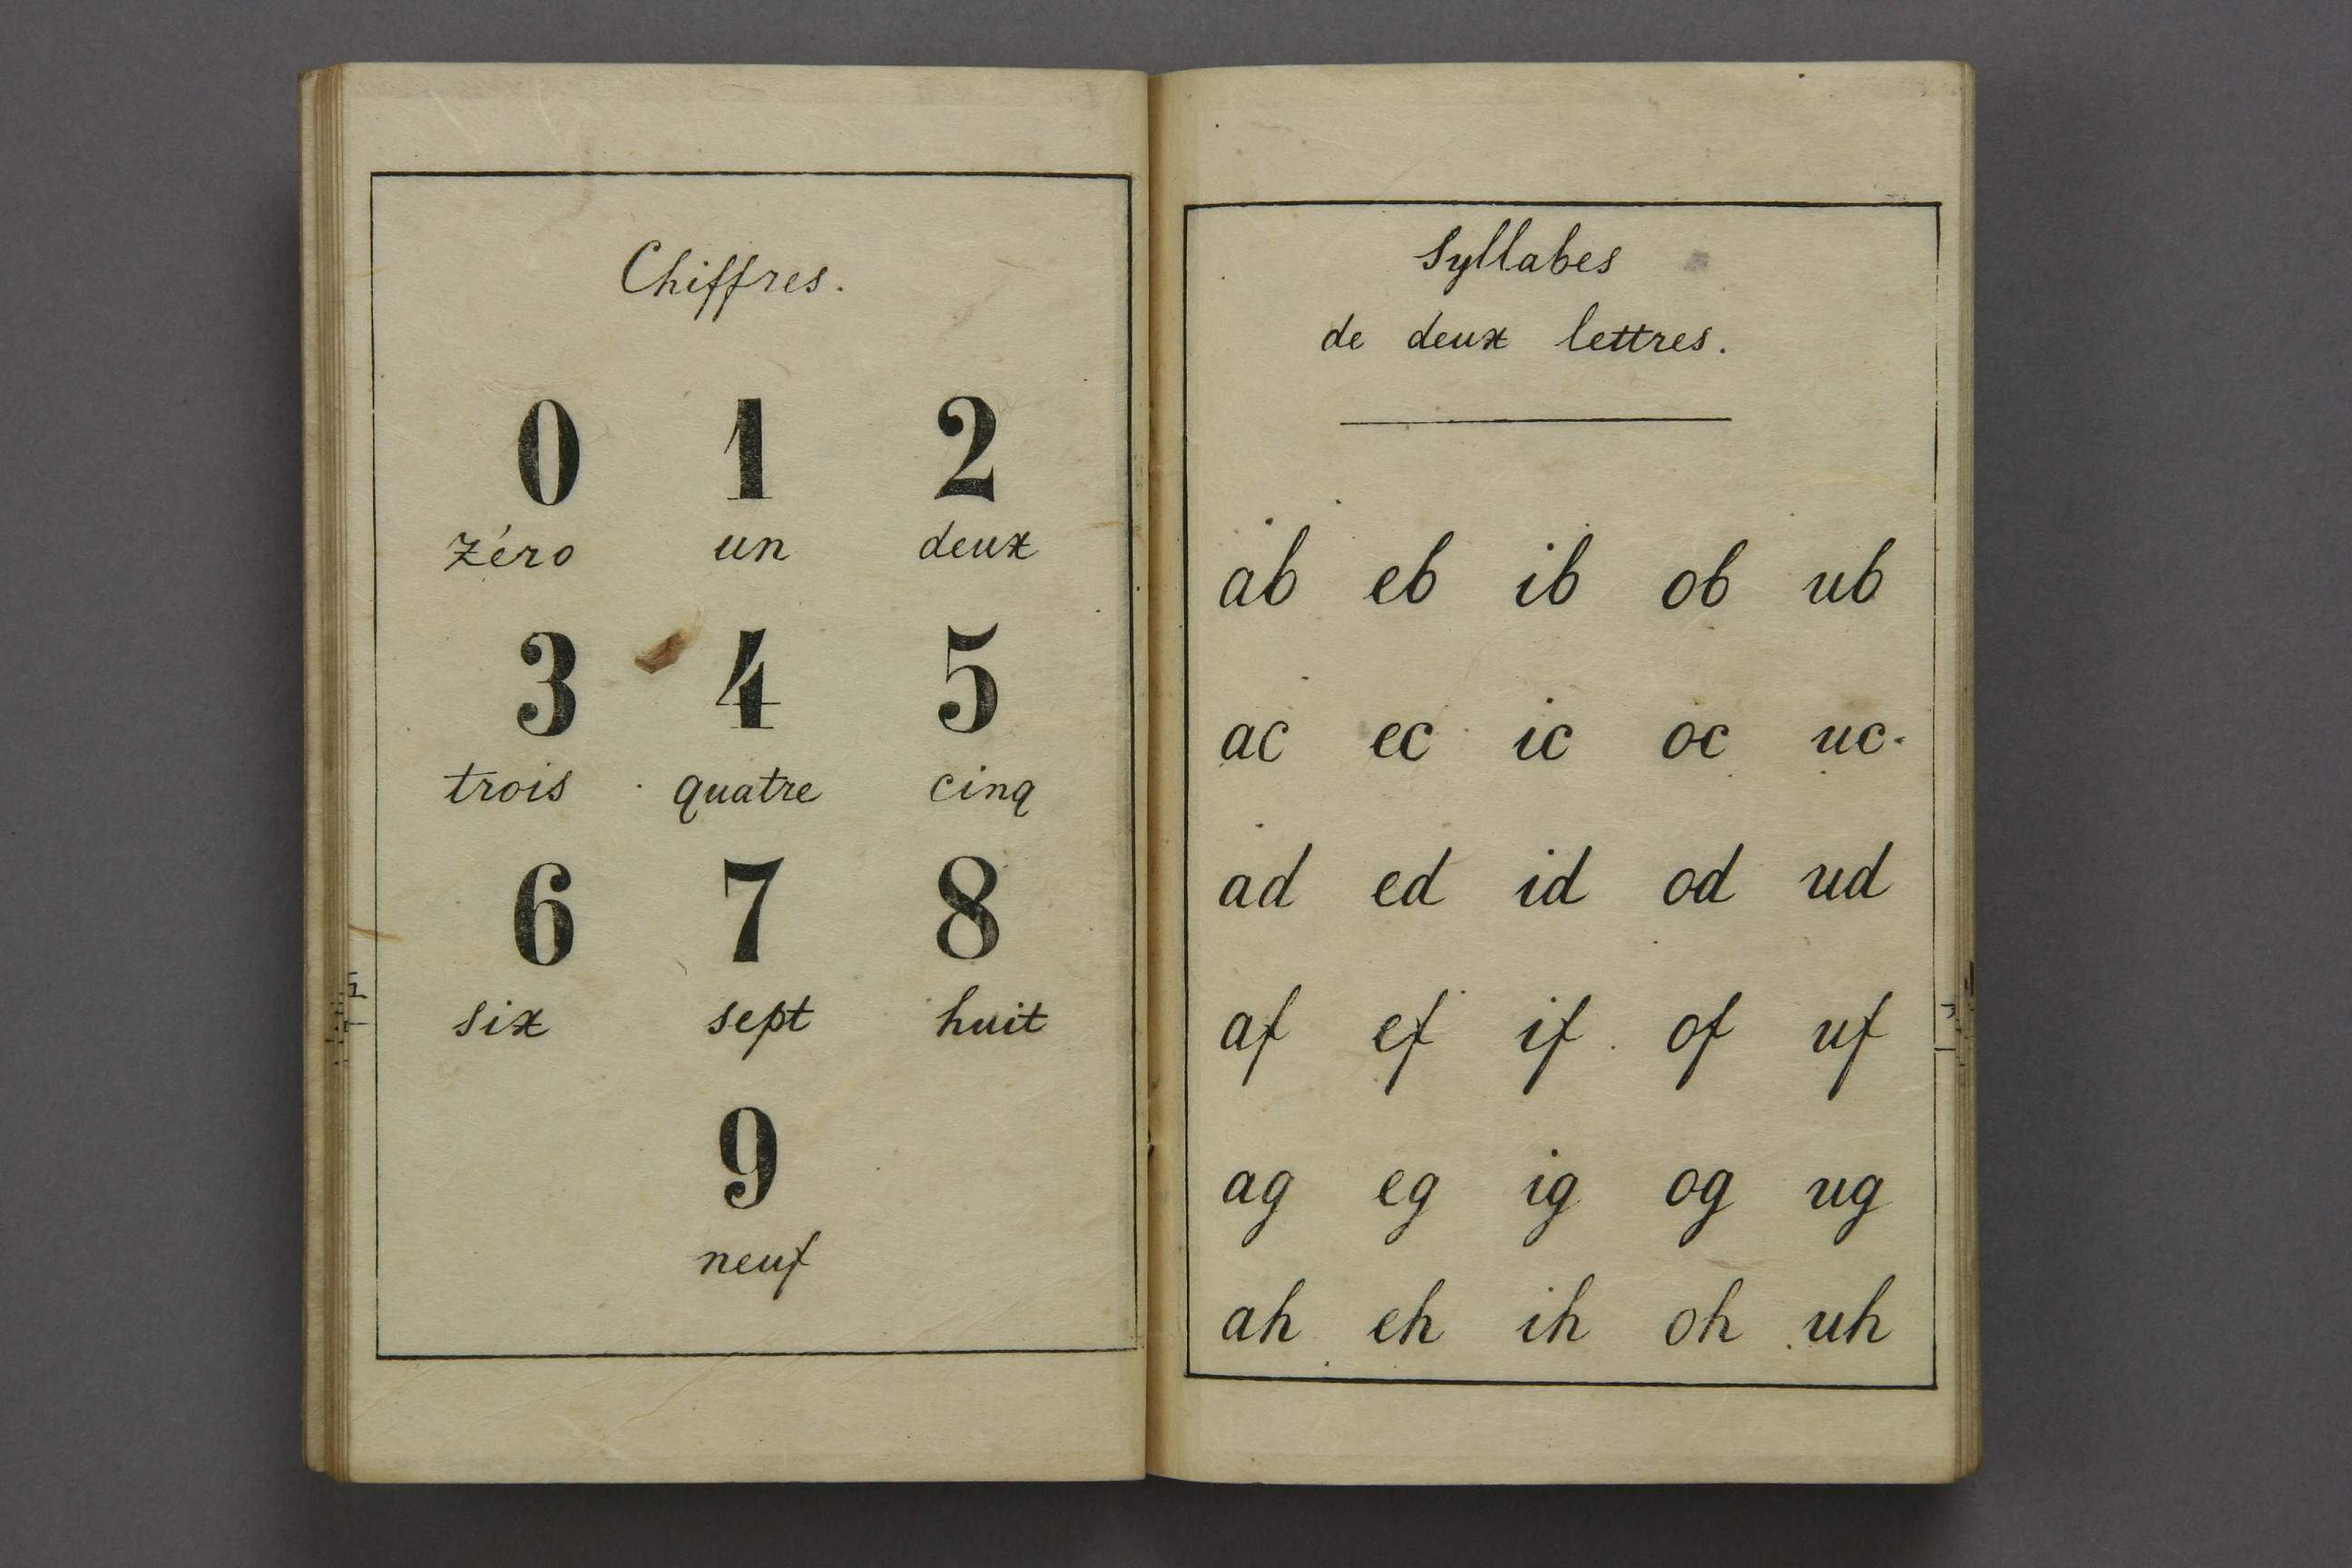 Chiffres.
0 1 2
zéro un deux
3 4 5
trois quatre cinq
6 7 8
six sept huit
9
neuf
Syllabes
de deux lettres.
ab eb ib ob ub
ac ec ic oc uc.
ad ed id od ud
af ef if of uf
ag eg ig og ug
ah eh ih oh uh